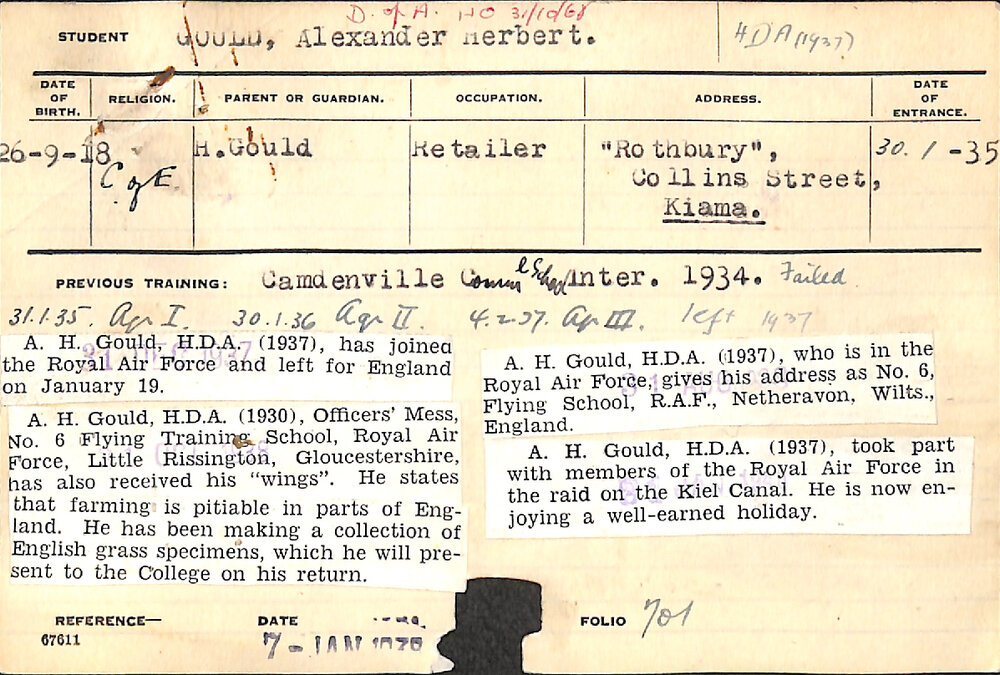 D. of A. HO 31/10/68
STUDENT GOULD, Alexander Herbert. HDA (1937)
DATE OF BIRTH. RELIGION. PARENT OR GUARDIAN. OCCUPATION. ADDRESS. DATE OF ENTRANCE.
26-9-18. C of E. H.Gould Retailer "Rothbury", 30. 1 -35
Collins Street,
Kiama.
PREVIOUS TRAINING: Camdenville Comm'l School Inter. 1934. Failed
31.1.35. Agr I. 30.1.36 Agr II. 4.2.37. Agr III. left 1937
A. H. Gould, H.D.A. (1937), has joined
the Royal Air Force and left for England
on January 19.
A. H. Gould, H.D.A. (1930), Officers' Mess,
No. 6 Flying Training School, Royal Air
Force, Little Rissington, Gloucestershire,
has also received his "wings". He states
that farming is pitiable in parts of Eng-
land. He has been making a collection of
English grass specimens, which he will pre-
sent to the College on his return.
A. H. Gould, H.D.A. (1937), who is in the
Royal Air Force, gives his address as No. 6,
Flying School, R.A.F., Netheravon, Wilts.,
England.
A. H. Gould, H.D.A. (1937), took part
with members of the Royal Air Force in
the raid on the Kiel Canal. He is now en-
joying a well-earned holiday.
REFERENCE— DATE FOLIO 701
67611 7 - JAN 1938